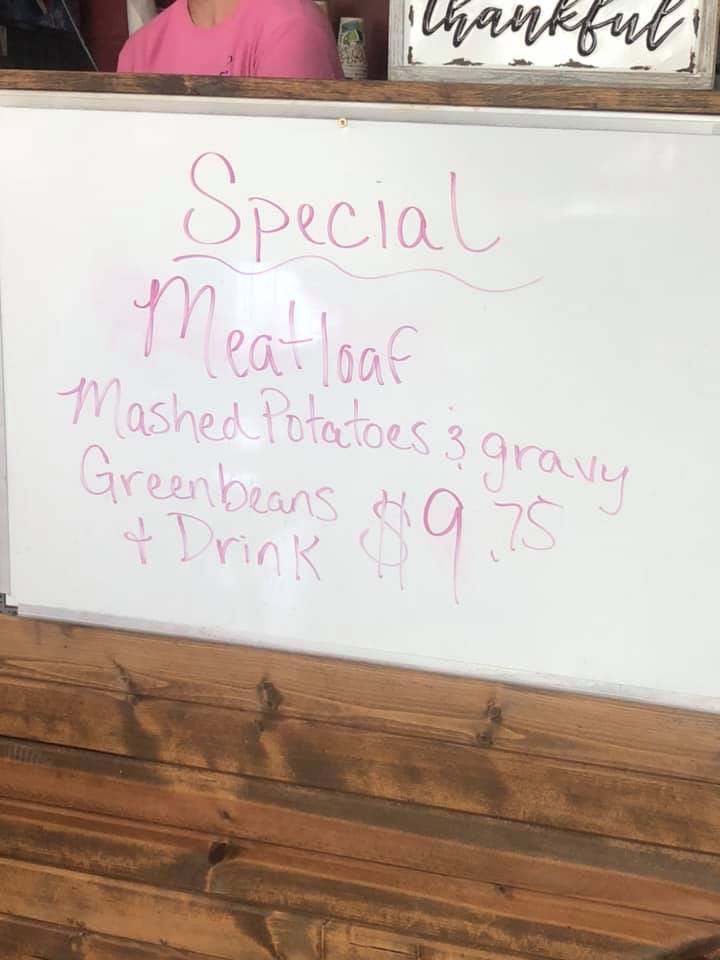 thankful
Special
Meatloaf
Mashed Potatoes & gravy
Greenbeans
+ Drink $9.75